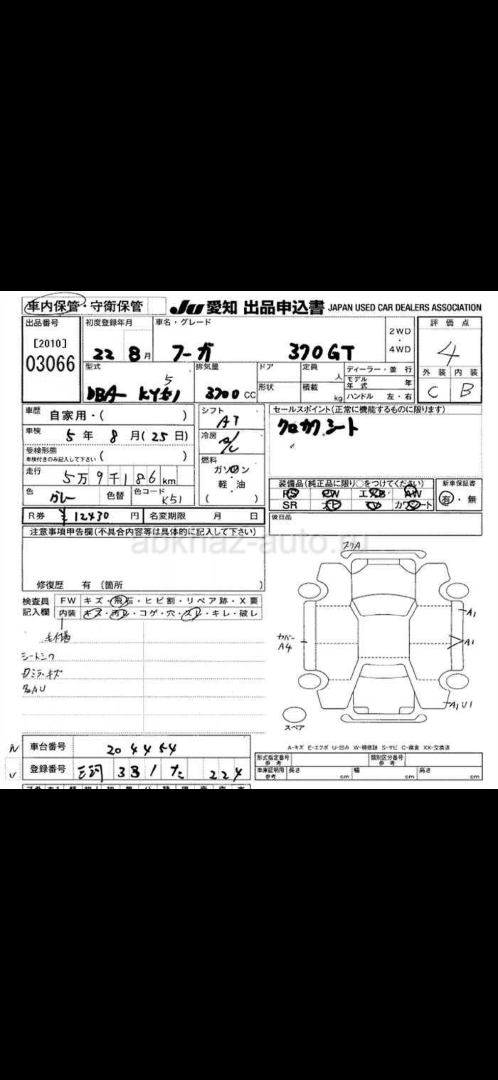 車内保管・守衛保管 JU 愛知 出品申込書 JAPAN USED CAR DEALERS ASSOCIATION
出品番号 初度登録年月 車名・グレード 2WD・4WD 評価点
[2010] 03066 22 8月 フーガ 370GT 4
型式 排気量 ドア 定員 人 ディーラー・並行 外装 内装
DBA- KY51 3700 CC 形状 積載 kg モデル年式 年 ハンドル 左・右 C B
車歴 自家用・( ) シフト AT セールスポイント(正常に機能するものに限ります)
車検 5年 8月(25日) 冷房 A/C クロカワシート
受検形態 車検付きのみ記入して下さい 燃料 ガソリン・軽油・( )
走行 5万9千186km 装備品(純正品に限り○をつけてください) 新車保証書
色 グレー 色替 色コード K51 PS PW エアB AW 有・無
SR カワシート
R券 ¥12430円 名変期限 月 日 後日品
注意事項申告欄(不具合内容等は具体的に記入して下さい)
abkhaz-auto.ru
修復歴 有 (箇所 )
スリA
検査員記入欄 FW キズ・飛石・ヒビ割・リペア跡・X要
内装 キズ・汚レ・コゲ・穴・スレ・キレ・破レ
A1
カバー A4 A1
シートシワ
各AU A1U1
スペア
A-キズ E-エクボ U-凹み W-補修跡 S-サビ C-腐食 XX-交換済
車台番号 204454
登録番号 331 た 224
形式指定番号 参考 類別区分番号 参考
車庫証明用 参考 長さ cm 幅 cm 高さ cm